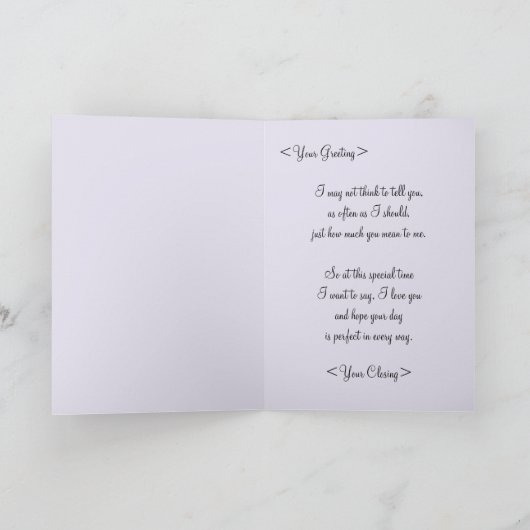 <Your Greeting>
I may not think to tell you,
as often as I should,
just how much you mean to me.
So at this special time
I want to say, I love you
and hope your day
is perfect in every way.
<Your Closing>